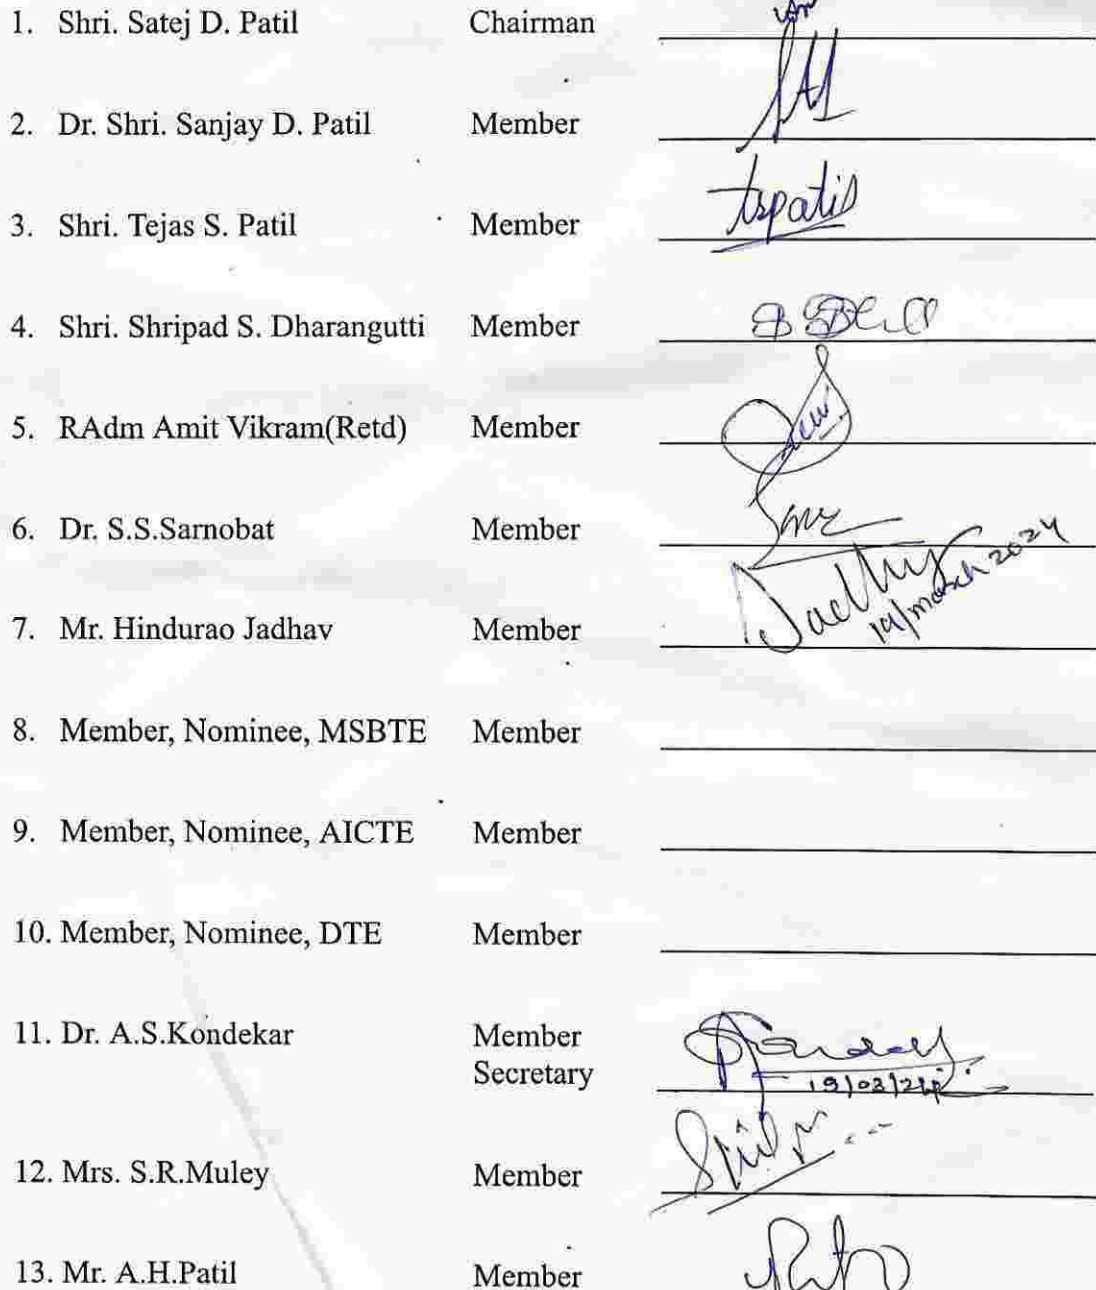 1. Shri. Satej D. Patil Chairman
2. Dr. Shri. Sanjay D. Patil Member
3. Shri. Tejas S. Patil Member tspatil
4. Shri. Shripad S. Dharangutti Member
5. RAdm Amit Vikram(Retd) Member
6. Dr. S.S.Sarnobat Member
7. Mr. Hindurao Jadhav Member 19/march 2024
8. Member, Nominee, MSBTE Member
9. Member, Nominee, AICTE Member
10. Member, Nominee, DTE Member
11. Dr. A.S.Kondekar Member
Secretary 19/03/24
12. Mrs. S.R.Muley Member
13. Mr. A.H.Patil Member